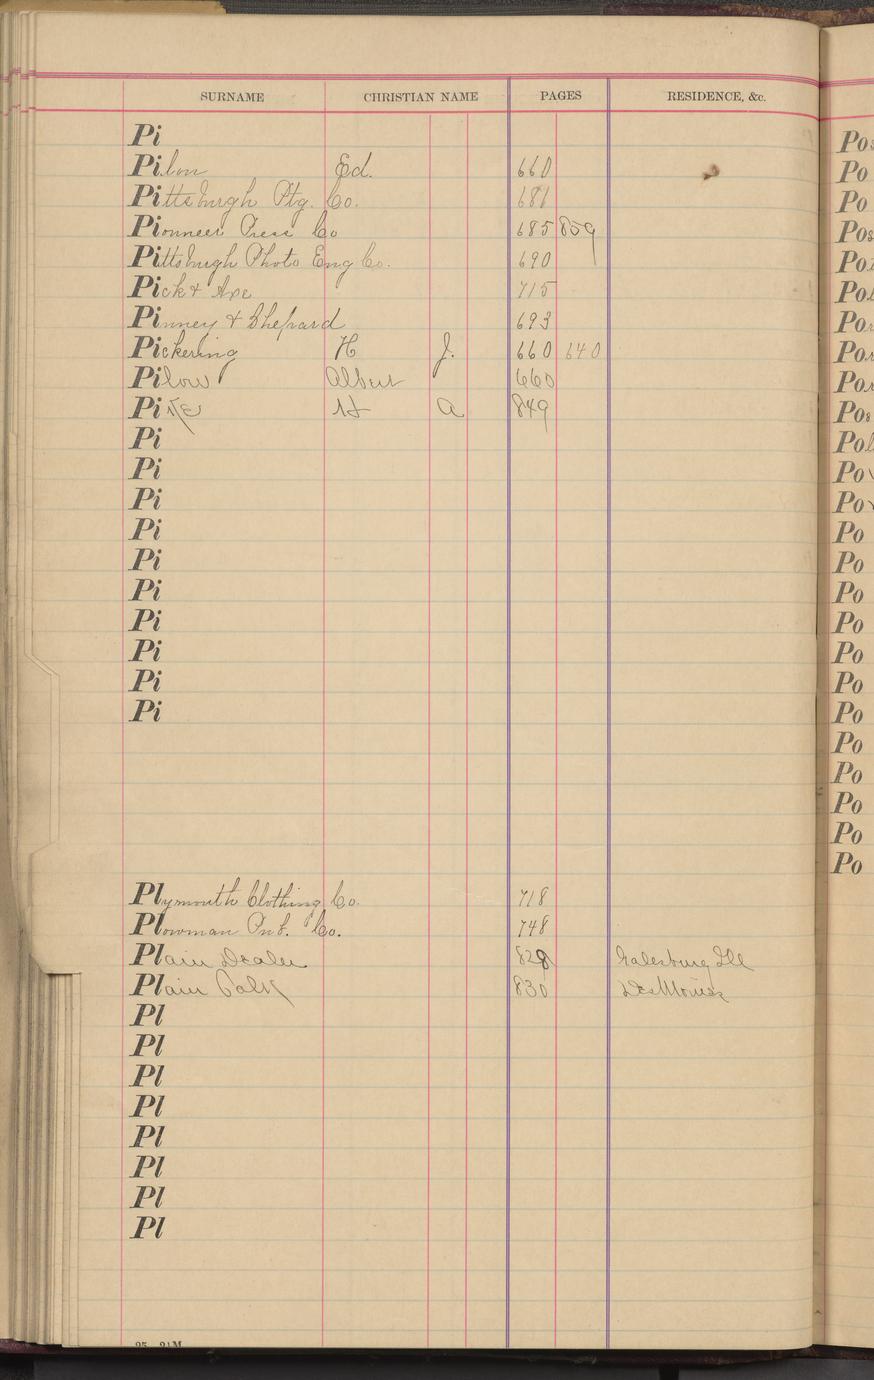 SURNAME CHRISTIAN NAME PAGES RESIDENCE, &c.
Pi
Pilon Ed. 660
Pittsburgh Ptg. Co. 681
Pionneer Press Co 685 859
Pittsburgh Photo Eng Co. 690
Pick & Axe 715
Pinney & Shepard 693
Pickering H J. 660 640
Pilow Albert 660
Pike H A 849
Pi
Pi
Pi
Pi
Pi
Pi
Pi
Pi
Pi
Pi
Plymouth Clothing Co. 718
Plowman Pub. Co. 748
Plain Dealer 828 Galesburg Ill
Plain Talk 830 Des Moines
Pl
Pl
Pl
Pl
Pl
Pl
Pl
Pl
Pos
Po
Po
Pos
Po
Pol
Por
Por
Por
Pos
Pol
Po
Po
Po
Po
Po
Po
Po
Po
Po
Po
Po
Po
Po
Po